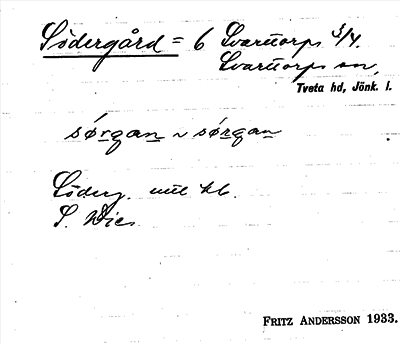 Södergård = 6 Svarttorps 3/4.
Svarttorps sn,
Tveta hd, Jönk. l.
sǿrgan ~ sǿrgan
Söderg.
S.
FRITZ ANDERSSON 1933.